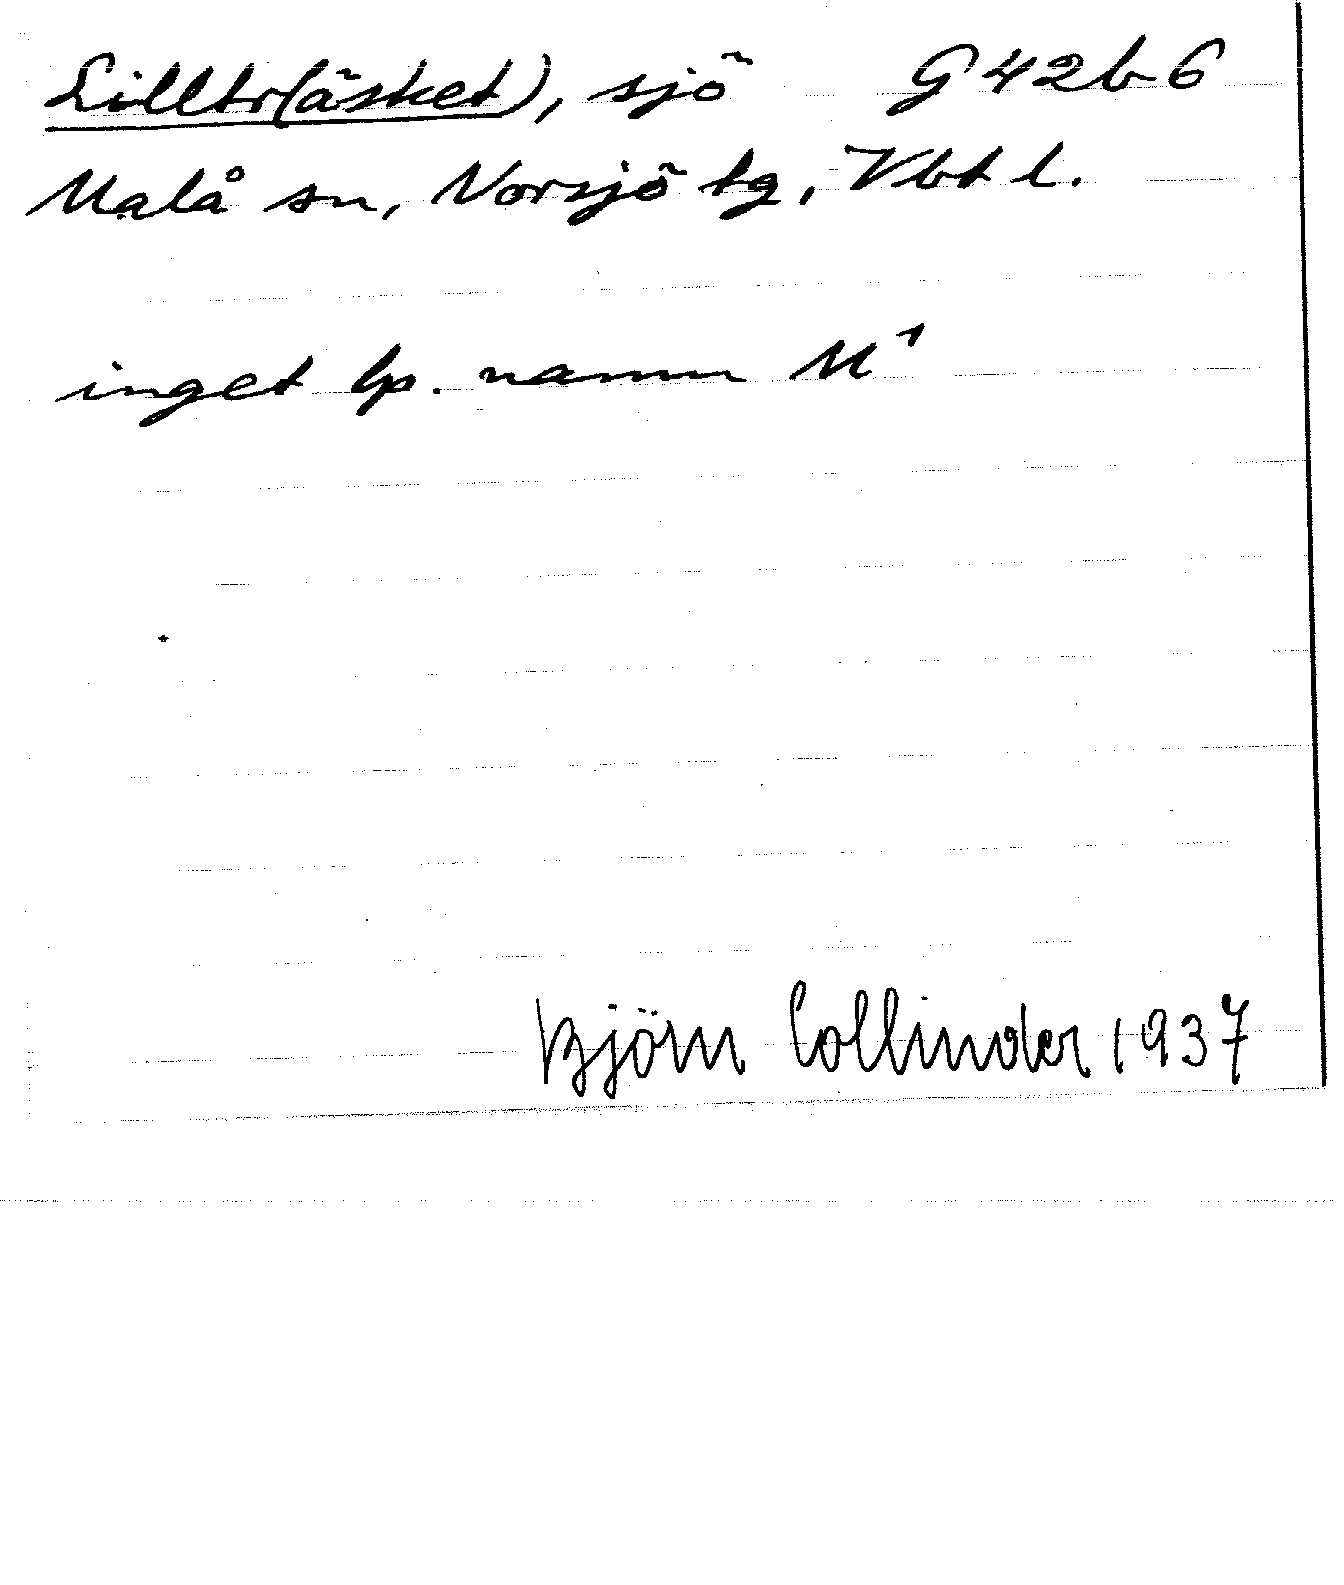 Lilltr(äsket), sjö G 42 b 6
Malå sn, Norsjö tg, Vbt l.
inget lp. namn M¹
Björn Collinder 1937